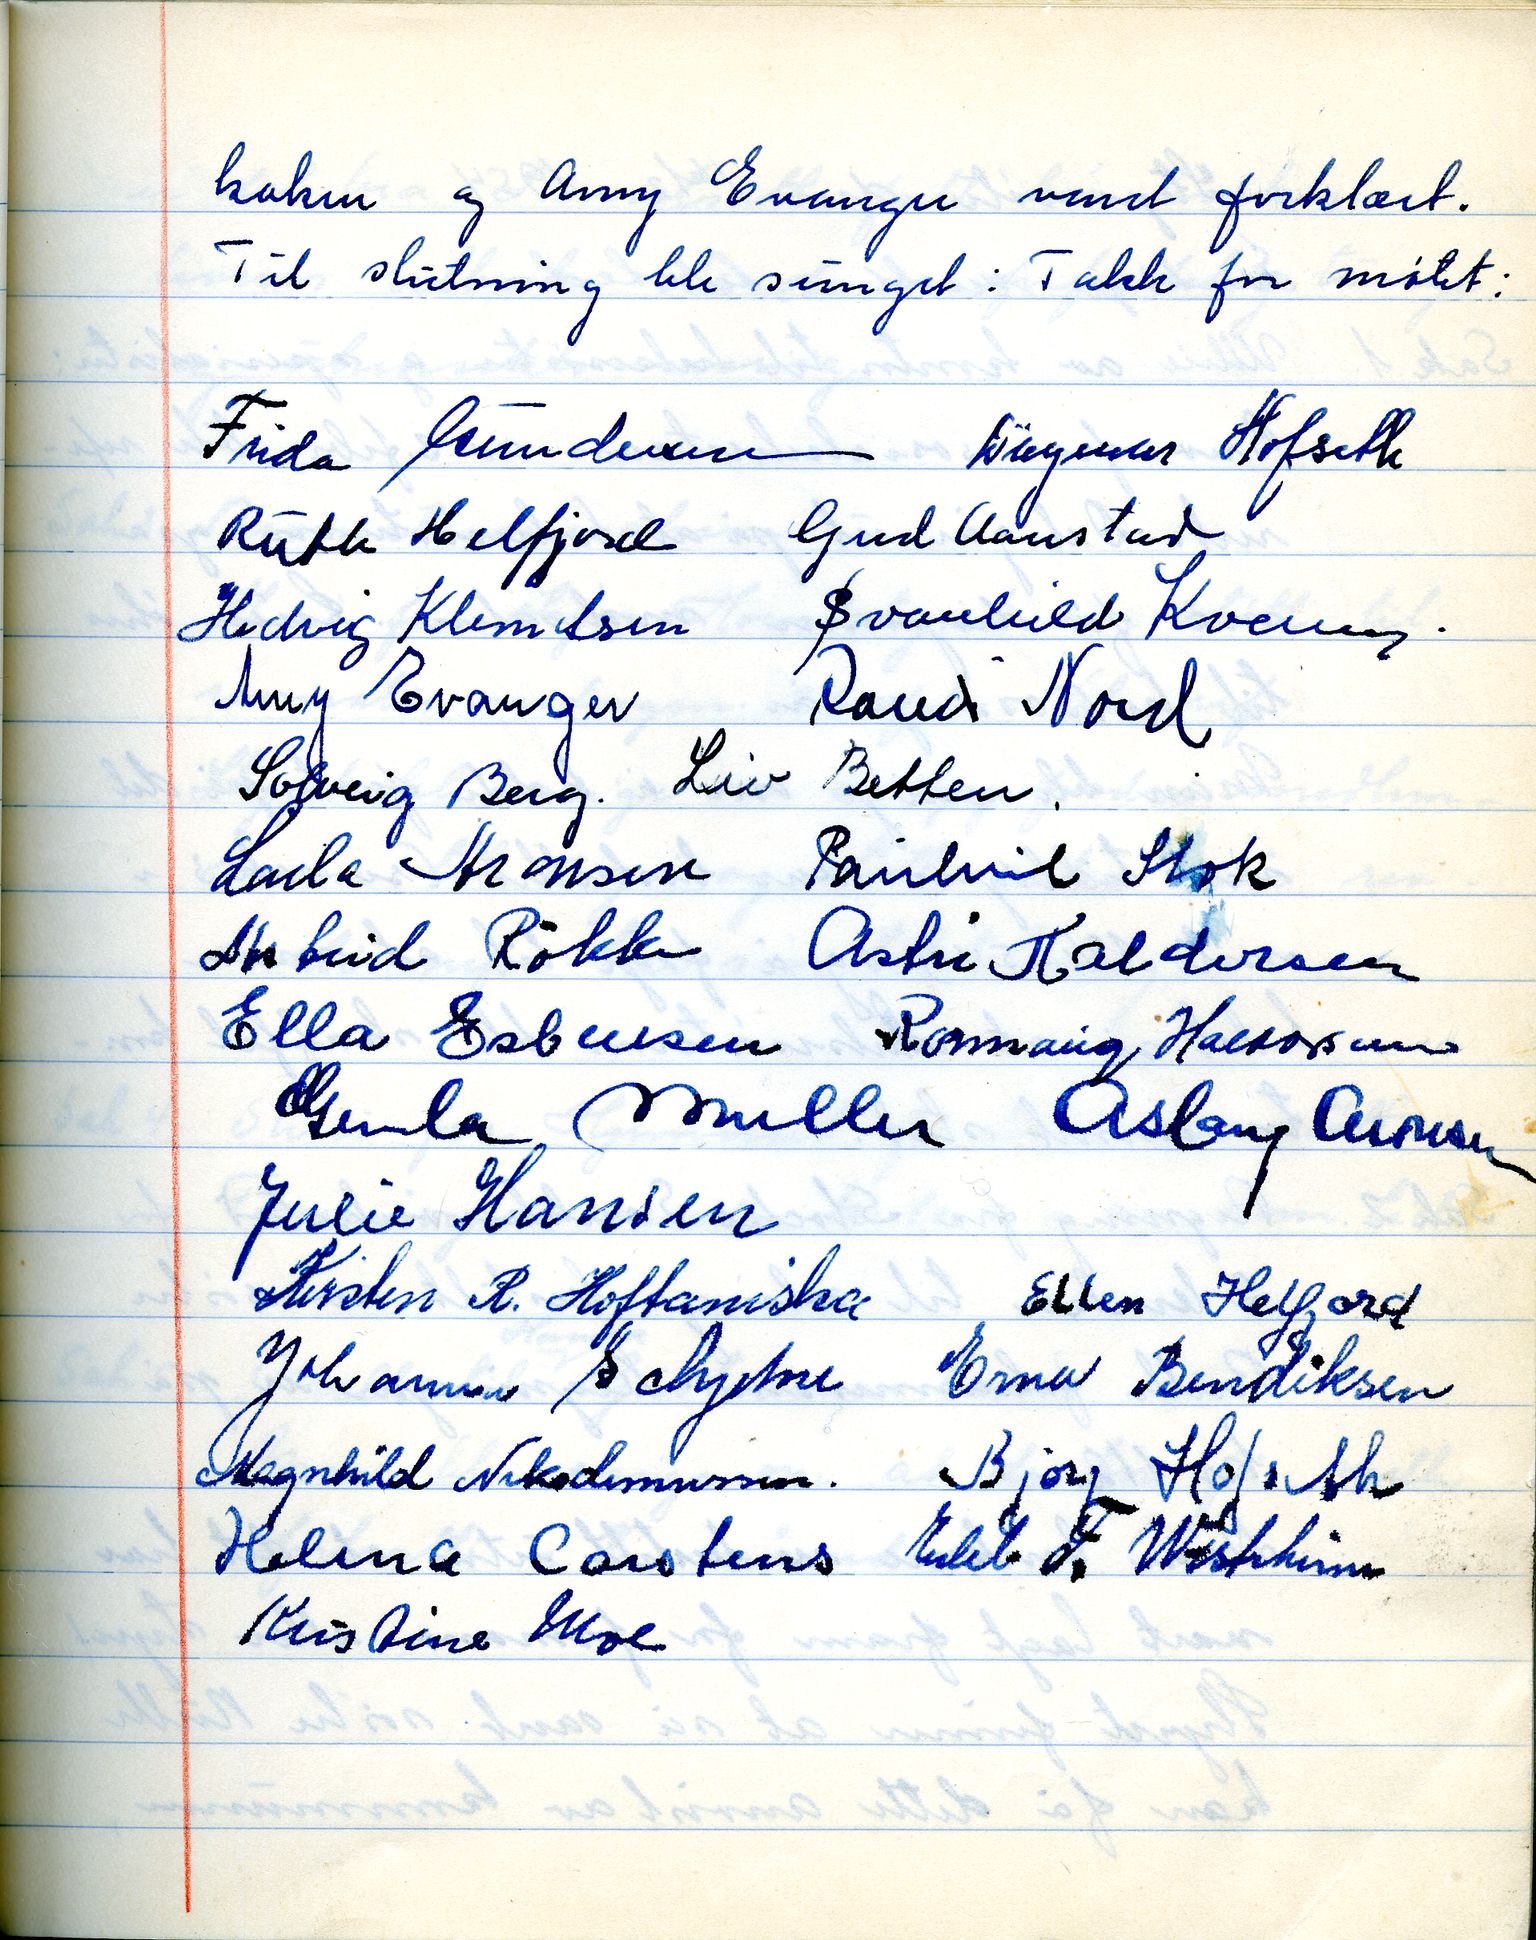 kaken og Amy Evanger vant forklæet.
Til slutning ble sunget: Takk for møtet:
Frida Gundersen Dagmar Hofseth
Ruth Helfjord Gud Aanstad
Hedvig Klemetsen Svanhild Kvening.
Amy Evanger Randi Nord
Solveig Berg. Liv Betten.
Laila Aronsen Ranveig Stok
Astrid Røkke Astri Haldersen
Ella Esbensen Ronnaug Halvorsen
Gerda Müller Aslaug Aronsen
Julie Hansen
Kirsten R. Hoftaniska Ellen Helfjord
Johanna Schytme Erna Bendiksen
Magnhild Nikodemussen. Bjørg Hofseth
Helena Carstens F. Westrheim
Kristine Moe